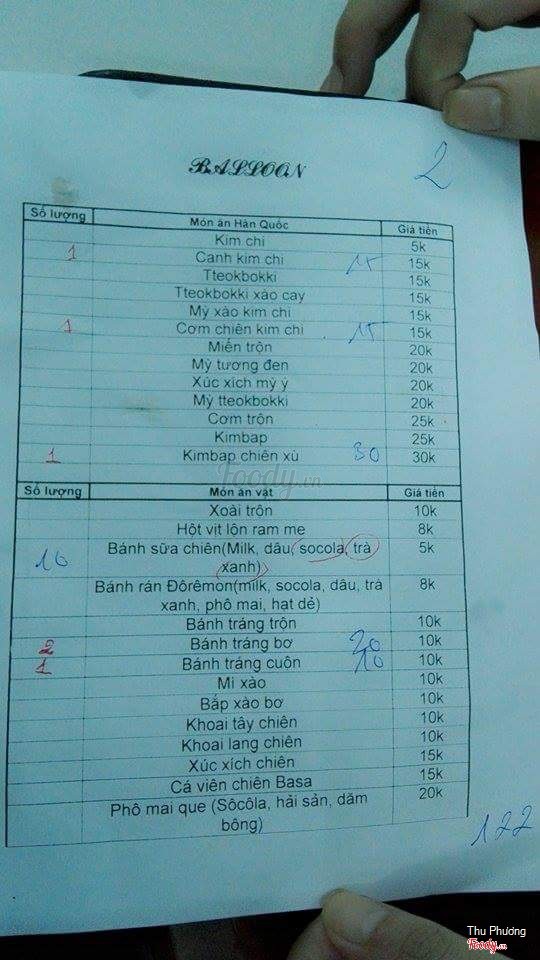 BALLOON
2
Số lượng Món ăn Hàn Quốc Giá tiền
Kim chi 5k
1 Canh kim chi 15 15k
Tteokbokki 15k
Tteokbokki xào cay 15k
Mỳ xào kim chi 15k
1 Cơm chiên kim chi 15 15k
Miến trộn 20k
Mỳ tương đen 20k
Xúc xích mỳ ý 20k
Mỳ tteokbokki 20k
Cơm trộn 25k
Kimbap 25k
1 Kimbap chiên xù 30 30k
Foody.vn
Số lượng Món ăn vặt Giá tiền
Xoài trộn 10k
Hột vịt lộn ram me 8k
Bánh sữa chiên(Milk, dâu, socola, trà 5k
10 xanh)
Bánh rán Đôrêmon(milk, socola, dâu, trà 8k
xanh, phô mai, hạt dẻ)
Bánh tráng trộn 10k
2 Bánh tráng bơ 20 10k
1 Bánh tráng cuôn 10 10k
Mì xào 10k
Bắp xào bơ 10k
Khoai tây chiên 10k
Khoai lang chiên 10k
Xúc xích chiên 15k
Cá viên chiên Basa 15k
Phô mai que (Sôcôla, hải sản, dăm 20k
bông)
122
Thu Phương
Foody.vn